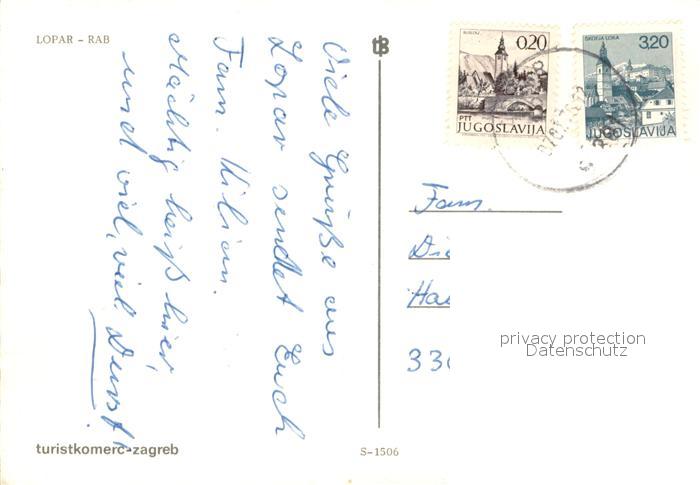 LOPAR – RAB
tB
0,20
PTT
JUGOSLAVIJA
ŠKOFJA LOKA
3,20
JUGOSLAVIJA
Viele Grüße aus
Lopar sendet Euch
Fam. Kilian.
Mächtig heiß hier,
und viel, viel Durst!
Fam.
Die
Ha
33
privacy protection
Datenschutz
turistkomerc-zagreb
S-1506